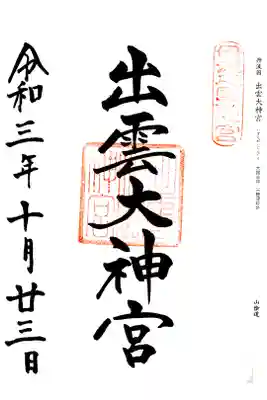 丹波國 出雲大神宮
山陰道
出雲大神宮
令和三年十月廿三日